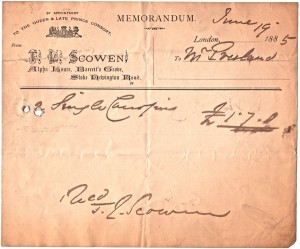 BY APPOINTMENT
TO THE QUEEN & LATE PRINCE CONSORT.
From
SCOWEN,
Alpha House, Barrett's Grove,
Stoke Newington Road.
MEMORANDUM.
June 19
London, 1885
To Mr
2 Single
£1.7.0
Recd
Scowen